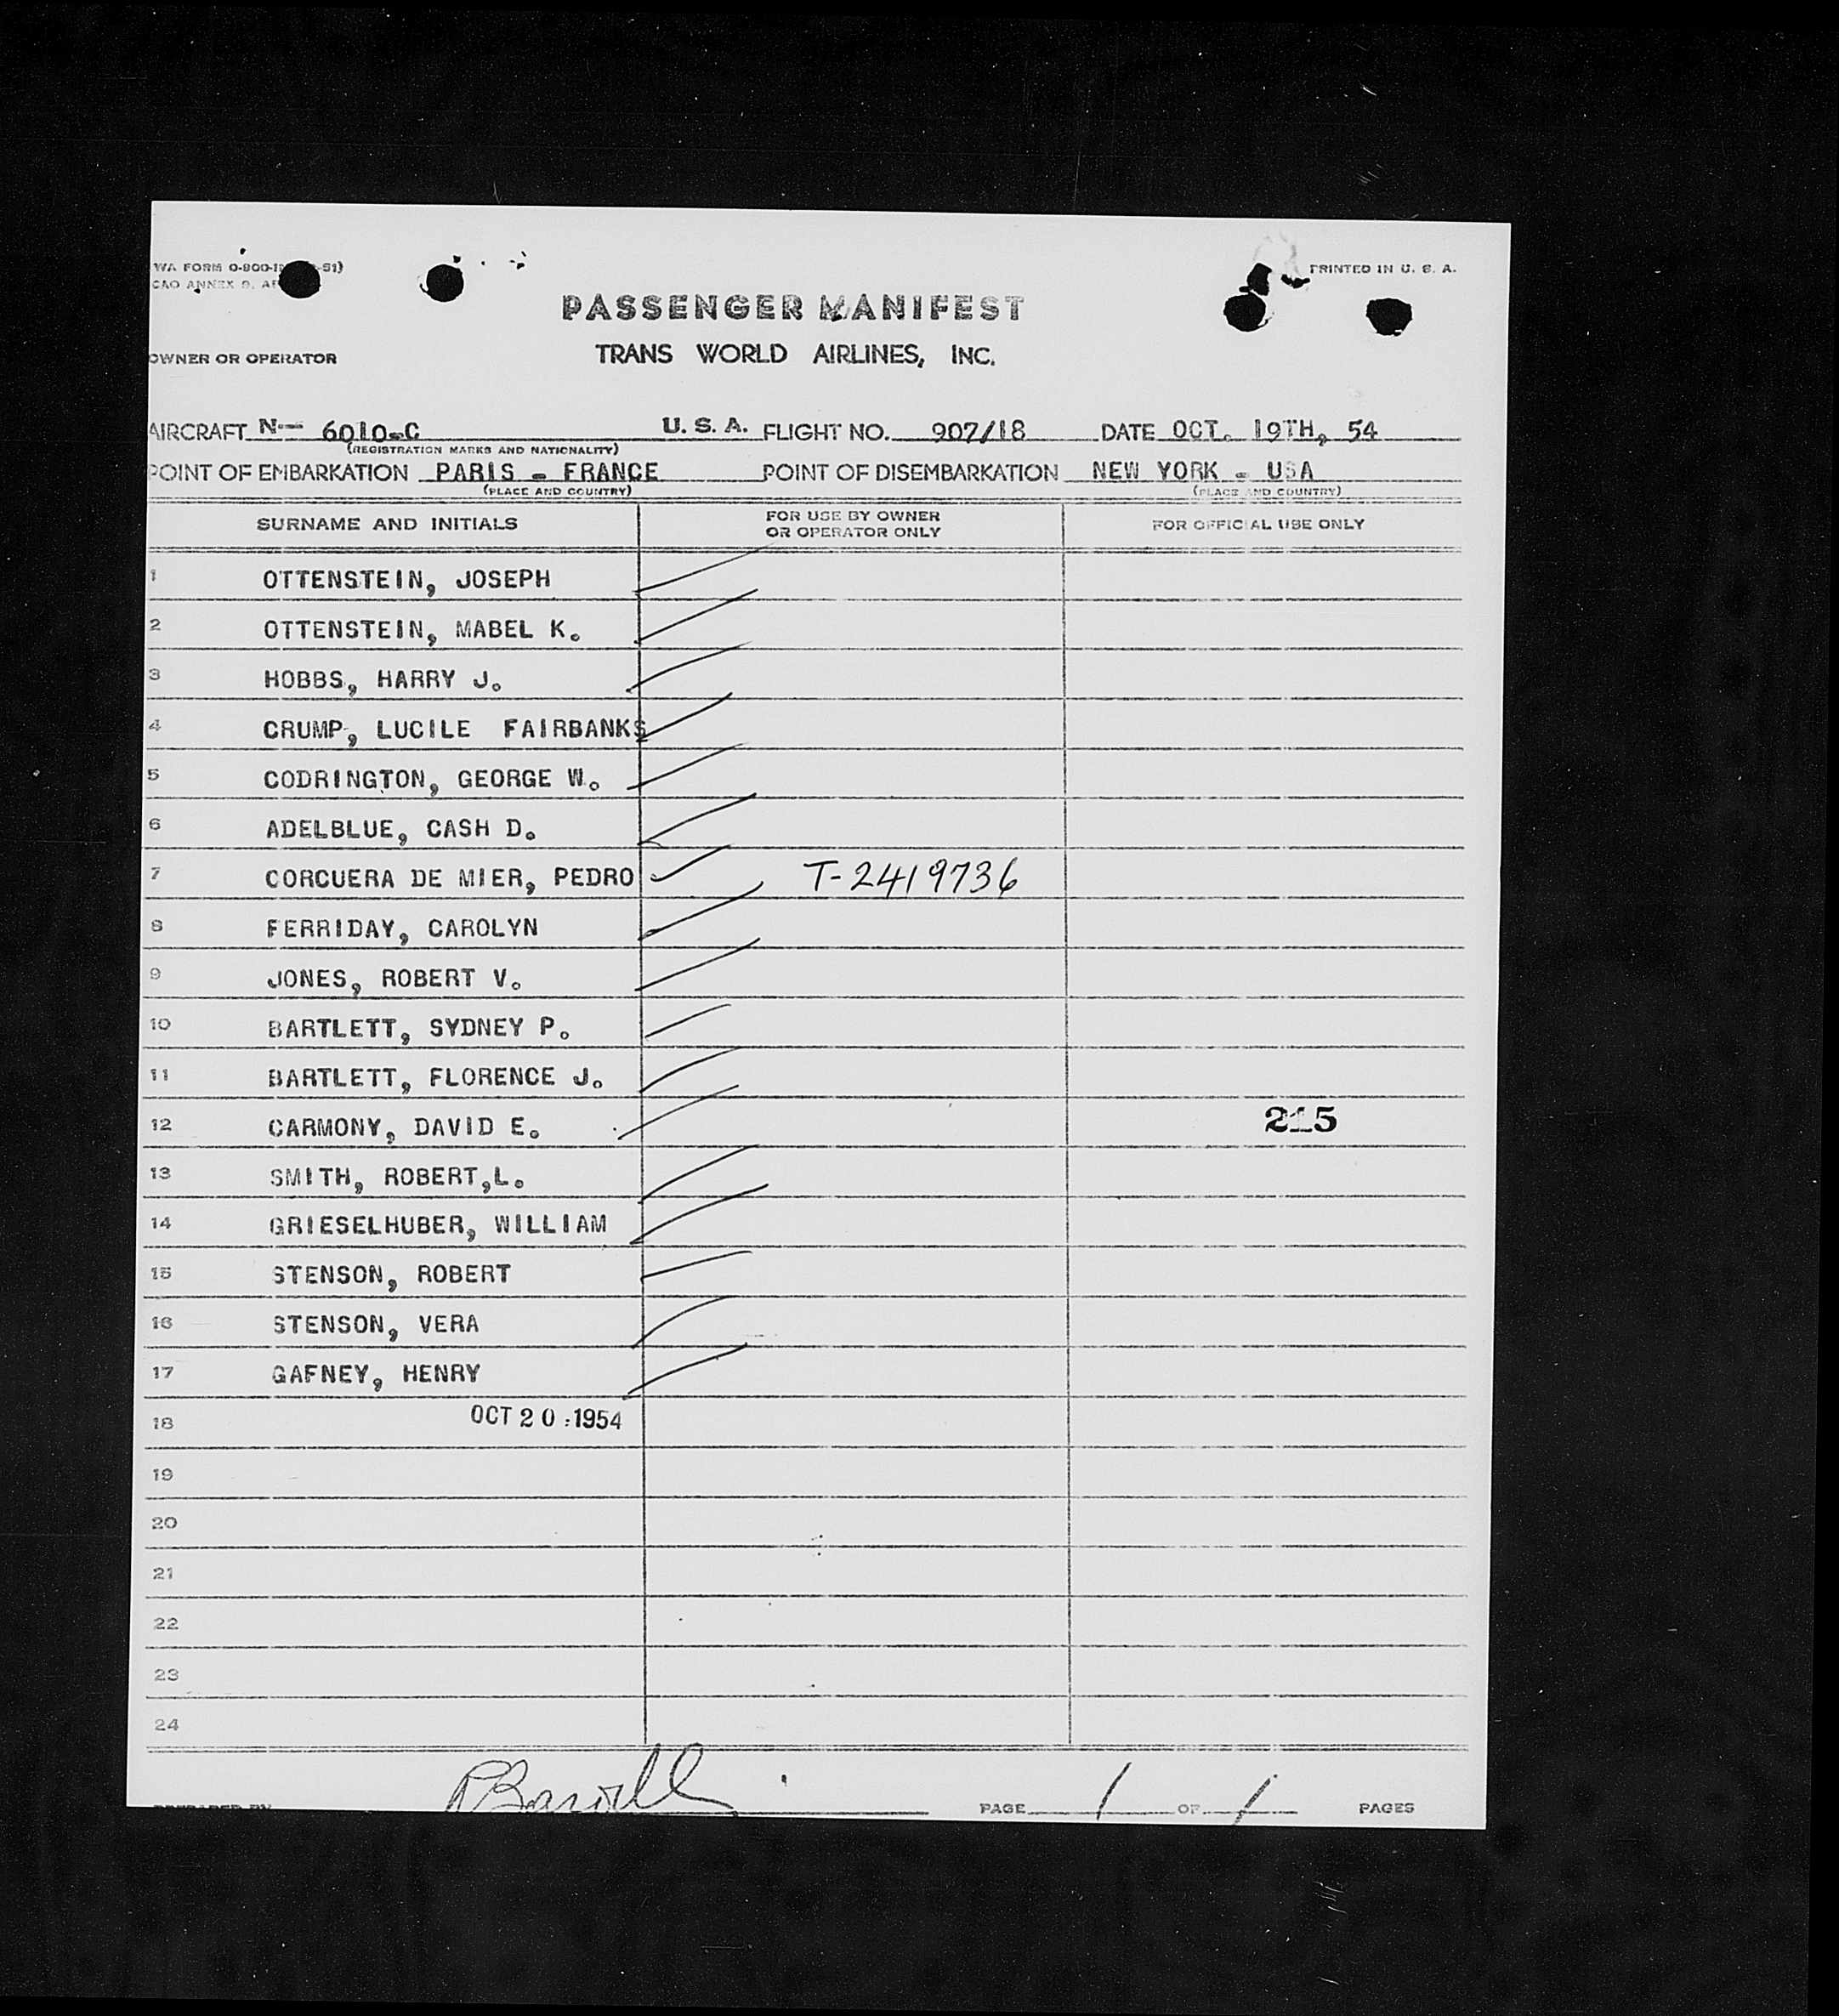 PRINTED IN U. S. A.
PASSENGER MANIFEST
OWNER OR OPERATOR TRANS WORLD AIRLINES, INC.
AIRCRAFT N— 6010-C U. S. A. FLIGHT NO. 907/18 DATE OCT. 19TH, 54
(REGISTRATION MARKS AND NATIONALITY)
POINT OF EMBARKATION PARIS - FRANCE POINT OF DISEMBARKATION NEW YORK - USA
(PLACE AND COUNTRY) (PLACE AND COUNTRY)
SURNAME AND INITIALS FOR USE BY OWNER OR OPERATOR ONLY FOR OFFICIAL USE ONLY
1 OTTENSTEIN, JOSEPH
2 OTTENSTEIN, MABEL K.
3 HOBBS, HARRY J.
4 CRUMP, LUCILE FAIRBANKS
5 CODRINGTON, GEORGE W.
6 ADELBLUE, CASH D.
7 CORCUERA DE MIER, PEDRO T-2419736
8 FERRIDAY, CAROLYN
9 JONES, ROBERT V.
10 BARTLETT, SYDNEY P.
11 BARTLETT, FLORENCE J.
12 CARMONY, DAVID E. 215
13 SMITH, ROBERT,L.
14 GRIESELHUBER, WILLIAM
15 STENSON, ROBERT
16 STENSON, VERA
17 GAFNEY, HENRY
18 OCT 20 1954
19
20
21
22
23
24
PREPARED BY PAGE 1 OF 1 PAGES